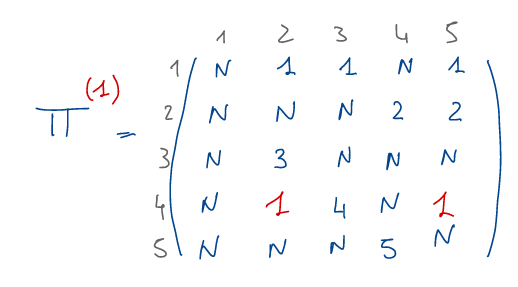 1 2 3 4 5
1 N 1 1 N 1
2 N N N 2 2
Π(1) = 3 N 3 N N N
4 N 1 4 N 1
5 N N N 5 N